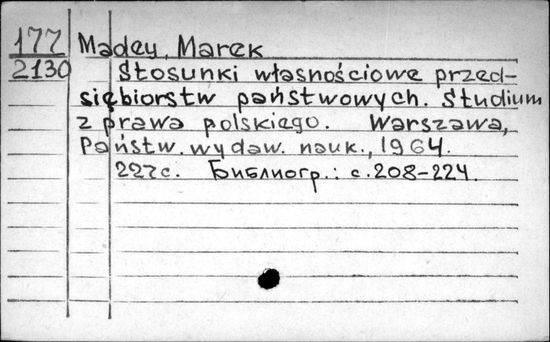 177 Madey, Marek
2130 Stosunki własnościowe przed-
siębiorstw państwowych. Studium
z prawa polskiego. Warszawa,
Państw. wydaw. nauk., 1964.
227 с. Библиогр.: с. 208-224.